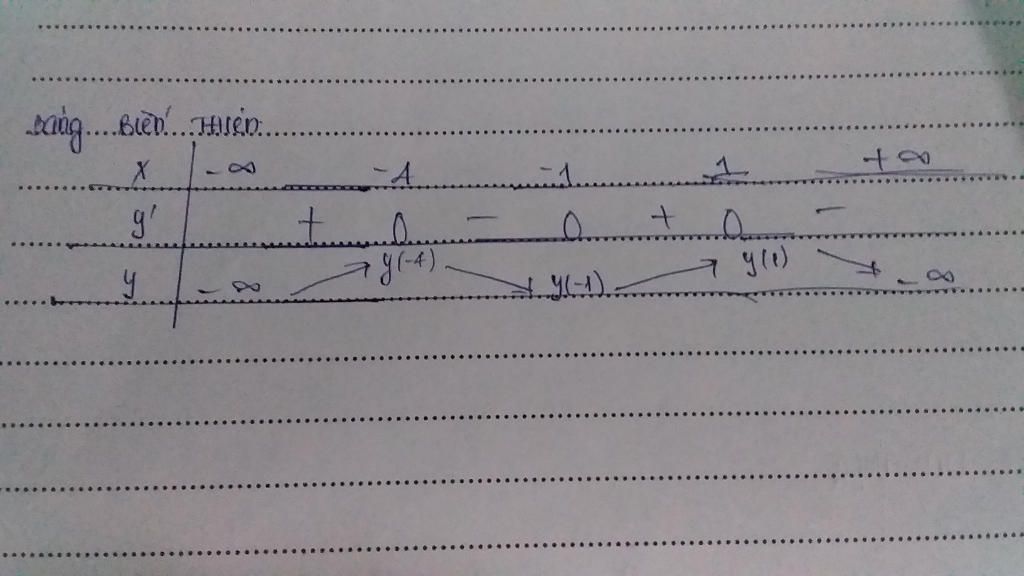 Bảng Biến Thiên
x -∞ -4 -1 1 +∞
y' + 0 - 0 + 0 -
y -∞ y(-4) y(-1) y(1) -∞